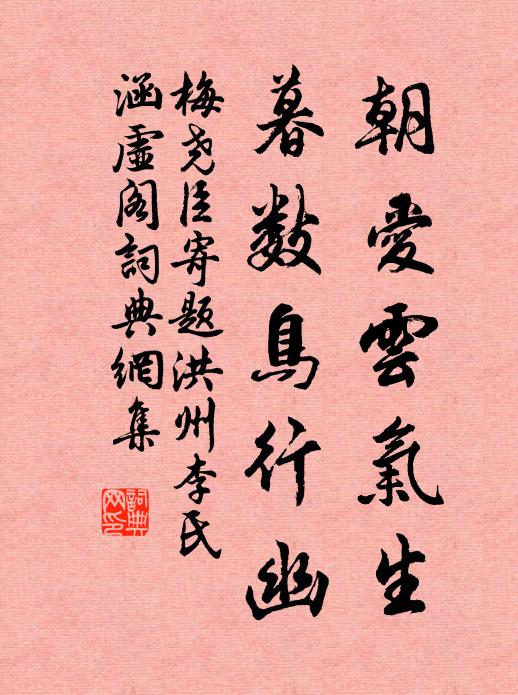 朝愛雲氣生
暮數鳥行幽
梅堯臣寄題洪州李氏
涵虛閣詞典網集
詞典網印